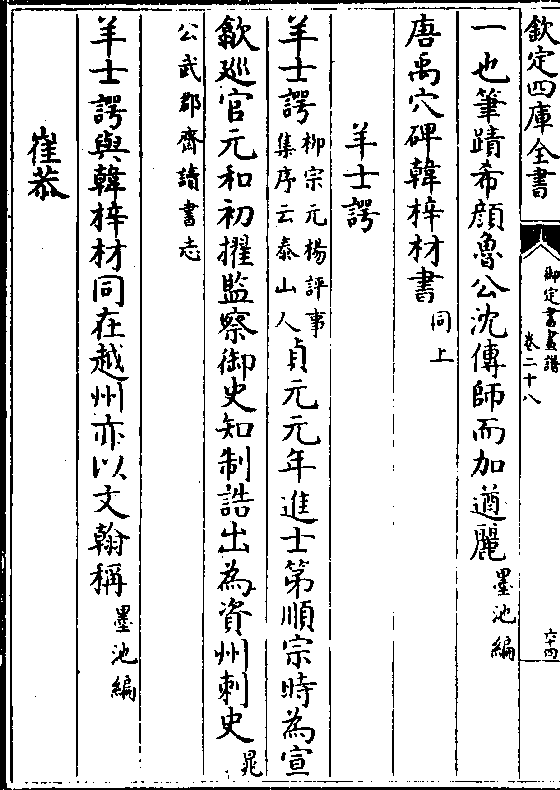 欽定四庫全書
御定書畫譜
卷二十八
六十四
一也筆蹟希顔魯公沈傳師而加遒麗墨池編
唐禹穴碑韓梓材書同上
羊士諤
羊士諤柳宗元楊評事集序云泰山人貞元元年進士第順宗時為宣
歙廵官元和初擢監察御史知制誥出為資州刺史晁
公武郡齋讀書志
羊士諤與韓梓材同在越州亦以文翰稱墨池編
崔恭